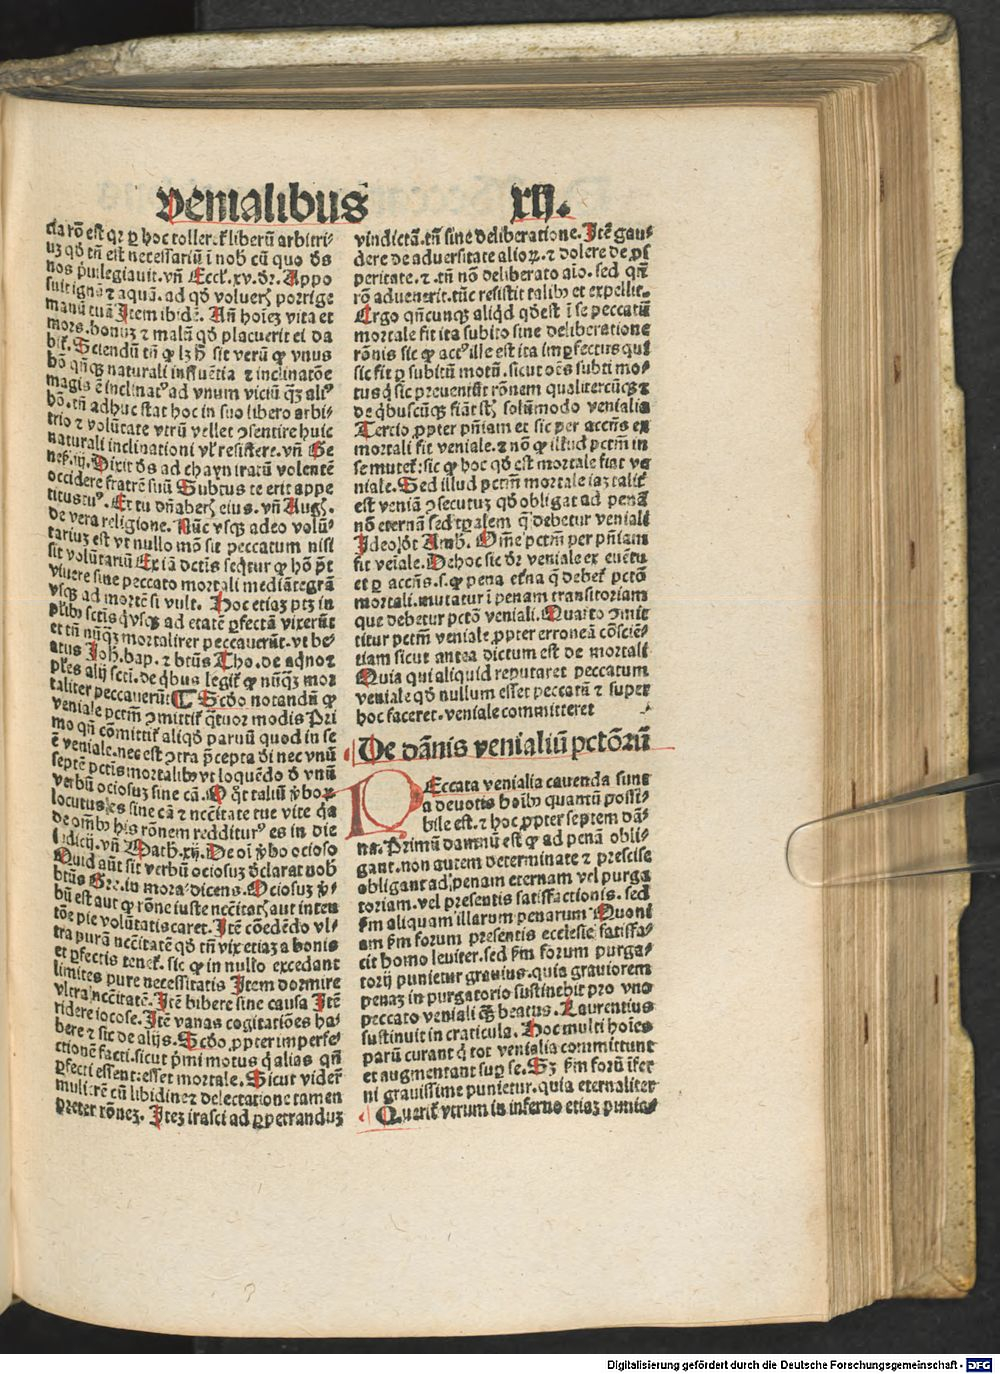 venialibus xij.
cta rō est qꝛ ꝑ hoc toller̄ liberū arbitri⸗
uꝫ qd̄ tn̄ est necessariū ī nob̄ cū quo d̄s
nos p̄uilegiauit. vn̄ Eccl̄. xv. dꝛ. Appo
suit ignē ⁊ aquā. ad qd̄ voluer̄ porrige
manū tuā Item ibidē. An̄ hoīeꝫ vita et
mors. bonuꝫ ⁊ malū qd̄ placuerit ei da
bit̄. Sciendū tn̄ ꝙ lꝫ h̄ sit verū ꝙ vnus
hō qn̄qꝫ naturali influētia ⁊ inclinatōe
magis ē inclinatꝰ ad vnum viciū qꝫ aliꝰ
hō. tn̄ adhuc stat hoc in suo libero arbi⸗
trio ⁊ volūtate vtrū vellet ꝯsentire huic
naturali inclinationi vl̄ resistere. vn̄ Ge
nes̄. iij. Dixit d̄s ad chayn iratū volentē
occidere fratrē suū Subtus te erit appe
titus tuꝰ. Et tu dn̄aber̄ eius. vn̄ Auḡ.
de vera religione. Nūc vsqꝫ adeo volū⸗
tariuꝫ est vt nullo mō sit peccatum nisi
sit volūtariū Ex iā dictis seqt̄ur ꝙ hō p̄t
viuere sine peccato mortali mediāte grā
vsqꝫ ad mortē si vult. Hoc etiaꝫ ptꝫ in
pl̄ibꝰ sctīs qui vsqꝫ ad etatē ꝑfectā vixerūt
et tn̄ nūqꝫ mortaliter peccauerūt. vt be⸗
atus Joh̄. bap. ⁊ btūs Tho. de aqno ⁊
pl̄es alij scti. de qbus legit̄ ꝙ nūqꝫ mor
taliter peccauerūt ¶ Scd̄o notandū ꝙ
veniale pctm̄ ꝯmittit̄ qtuor modis Pri
mo qn̄ cōmittit̄ aliqd̄ paruū quod in se
ē veniale. nec est ꝯtra p̄cepta di nec vnū
septē pctīs mortalibꝰ vt loquēdo d̄ vnū
verbū ociosuꝫ sine cā. O qt̄ taliū v̄boꝝ
locutus es sine cā ⁊ nc̄citate tue vite q̄a
de om̄ibꝰ his rōnem redditurꝰ es in die
iudicij. vn̄ Math. xij. De oī v̄bo ocioso
Quid aūt sit verbū ociosuꝫ d̄clarat nob̄
btūs Gre. in mora. dicens. Ociosuꝫ v̄⸗
bū est aut ꝙ rōne iuste nc̄citat̄ aut inten
tōe pie volūtatis caret. Itē cōedēdo vl⸗
tra purā nc̄citatē qd̄ tn̄ vix etiaꝫ a bonis
et ꝑfectis tenet̄. sic ꝙ in nullo excedant
limites pure necessitatis Item dormire
vltra nc̄citatē. Itē bibere sine causa Itē
ridere iocose. Itē vanas cogitatiōes ha⸗
bere ⁊ sic de alijs. Scd̄o ꝓpter imperfe⸗
ctionē facti. sicut p̄mi motus q̄ alias qn̄
ꝑfecti essent. esset mortale. Sicut vider̄
mulierē cū libidine ⁊ delectatione tamen
preter rōneꝫ. Iteꝫ irasci ad ꝑpetranduꝫ
vindictā. tn̄ sine deliberatione. Itē gau⸗
dere de aduersitate alioꝝ. ⁊ dolere de ꝓs
peritate. ⁊ tn̄ nō deliberato aīo. sed qn̄
rō aduenerit. tūc resistit talibꝰ et expellit.
Ergo qn̄cunqꝫ aliqd̄ qd̄ est ī se peccatū
mortale fit ita subito sine deliberatione
rōnis sic ꝙ actꝰ ille est ita imꝑfectus qui
sic fit ꝑ subitū motū. sicut oēs subti mo⸗
tus q̄ sic preueniūt rōnem qualitercūqꝫ ⁊
de qbuscūqꝫ fiāt st̄ solūmodo venialia
Tercio ꝓpter pn̄iam et sic per accn̄s ex
mortali fit veniale. ⁊ nō ꝙ illud pctm̄ in
se mutet̄: sic ꝙ hoc qd̄ est mortale fiat ve
niale. Sed illud pctm̄ mortale iaꝫ talit̄
est veniā ꝯsecutuꝫ qd̄ obligat ad penā
nō eternā sed tꝑalem q̄ debetur veniali
Ideo dt̄ Amb. Om̄e pctm̄ per pn̄iam
fit veīale. De hoc sic dꝛ veniale ex euētu
et ꝑ accn̄s. s. ꝙ pena etn̄a q̄ debet̄ pctō
mortali. mutatur ī penam transitoriam
que debetur pctō veniali. Quarto ꝯmit
titur pctm̄ veniale ꝓpter erroneā cōsciē⸗
tiam sicut antea dictum est de mortali
Quia qui aliquid reputaret peccatum
veniale qd̄ nullum esset peccatū ⁊ super
hoc faceret. veniale committeret
De dānis venialiū pctōꝝ
PEccata venialia cauenda sunt
a deuotis hoībꝰ quantū possi⸗
bile est. ⁊ hoc ꝓpter septem dā⸗
na. Primū damnū est ꝙ ad penā obli⸗
gant. non autem determinate ⁊ prescise
obligant ad penam eternam vel purga
toriam. vel presentis satisfactionis. sed
fm̄ aliquam illarum penarum Quoni
am fm̄ forum presentis ecclesie satisfa⸗
cit homo leuiter. sed fm̄ forum purga⸗
torij punietur grauius. quia grauiorem
penaꝫ in purgatorio sustinebit pro vno
peccato veniali qꝫ beatus. Laurentius
sustinuit in craticula. Hoc multi hoīes
parū curant q̄ tot venialia committunt
et augmentant suꝑ se. Sꝫ fm̄ forū īfer
ni grauissime punietur. quia eternaliter
Querit̄ vtrum in inferno etiaꝫ punia⸗
Digitalisierung gefördert durch die Deutsche Forschungsgemeinschaft - DFG